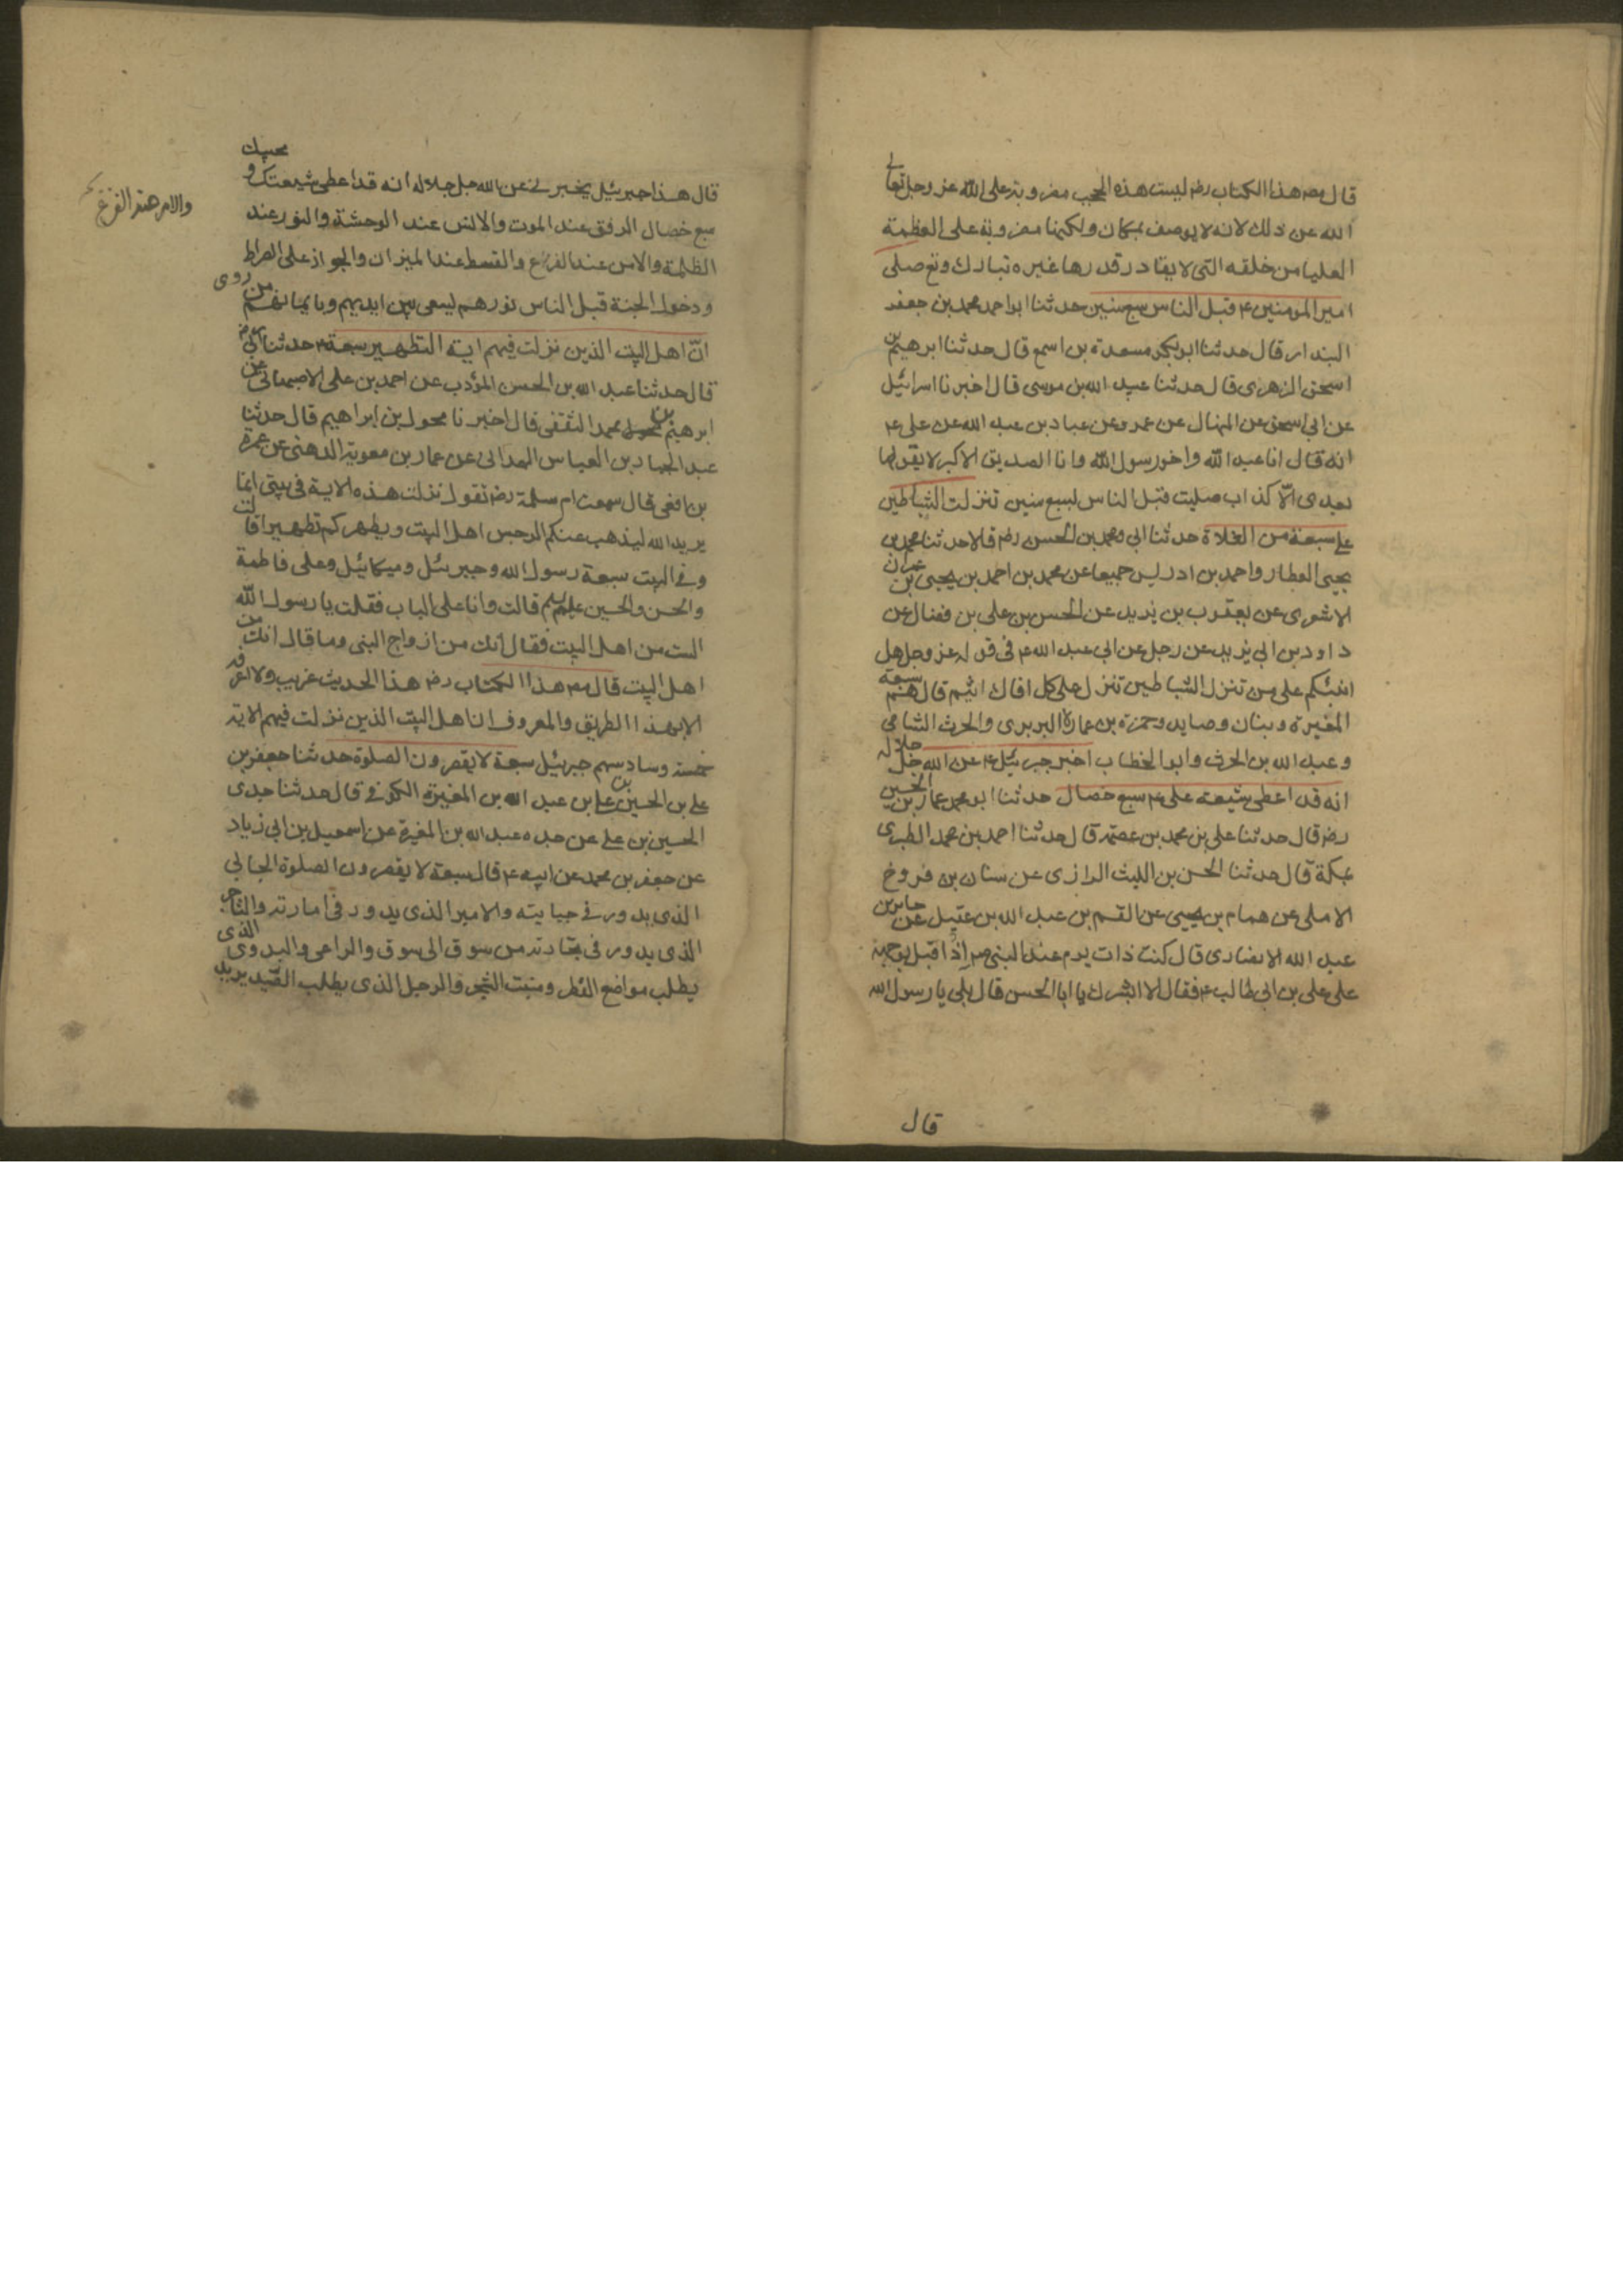 قال مص هذا الكتاب رض ليست هذه الحجب مضروبة على الله عز وجل تعالى
الله عن ذلك لانه لا يوصف بمكان ولكنها مضروبة على العظمة
العليا من خلقه التى لا يقادر قدرها غيره تبارك وتع صلى
امير المومنين ع قبل الناس سبع سنين حدثنا ابو احمد محمد بن جعفر
البندار قال حدثنا ابو بكر مسعدة بن اسمع قال حدثنا ابرهيم بن
اسحق الزهرى قال حدثنا عبيد الله بن موسى قال اخبرنا اسرائيل
عن ابى اسحق عن المنهال عن عمرو عن عباد بن عبد الله عن على ع
انه قال انا عبد الله واخو رسول الله وانا الصديق الاكبر لا يقولها
بعدى الّا كذاب صليت قبل الناس لسبع سنين تنزلت الشياطين
على سبعة من الغلاة حدثنا ابى ومحمد بن الحسن رض قالا حدثنا محمد بن
يحيى العطار واحمد بن ادريس جميعا عن محمد بن احمد بن يحيى بن عمران
الاشعرى عن يعقوب بن يزيد عن الحسن بن على بن فضال عن
داود بن ابى يزيد عن رجل عن ابى عبد الله ع فى قوله عز وجل هل
انبئكم على من تنزل الشياطين تنزل على كل افاك اثيم قال هم سبعة
المغيرة وبنان وصايد وحمزة بن عمارة البربرى والحرث الشامى
وعبد الله بن الحرث وابو الخطاب اخبر جبرئيل ع عن الله جل جلاله
انه قد اعطى شيعة على ع سبع خصال حدثنا ابو محمد عمار بن الحسين
رض قال حدثنا على بن محمد بن عصمة قال حدثنا احمد بن محمد الطبرى
بمكة قال حدثنا الحسن بن الليث الرازى عن سنان بن فروخ
الاملى عن همام بن يحيى عن القسم بن عبد الله بن عقيل عن جابر بن
عبد الله الانصارى قال كنت ذات يوم عند النبى ص اذ اقبل بوجهه
على على بن ابى طالب ع فقال الا ابشرك يا ابا الحسن قال بلى يا رسول الله
قال
قال هذا جبرئيل يخبرنى عن الله جل جلاله انه قد اعطى شيعتك و محبيك
سبع خصال الرفق عند الموت والانس عند الوحشة والنور عند
الظلمة والامن عند الفزع والقسط عند الميزان والجواز على الصراط
والامن عند الفزع
ودخول الجنة قبل الناس نورهم يسعى بين ايديهم وبايمانهم من روى
انّ اهل البيت الذين نزلت فيهم اية التطهير سبعة حدثنا ابى رض
قال حدثنا عبد الله بن الحسن المؤدب عن احمد بن على الاصبهانى عن
ابرهيم بن محمد الثقفى قال اخبرنا محول بن ابراهيم قال حدثنا
عبد الجبار بن العباس الهمدانى عن عمار بن معوية الدهنى عن عمرة
بن افعى قال سمعت ام سلمة رض تقول نزلت هذه الاية فى بيتى انما
يريد الله ليذهب عنكم الرجس اهل البيت ويطهركم تطهيرا قالت
وفى البيت سبعة رسول الله وجبرئيل وميكائيل وعلى فاطمة
والحسن والحسين عليهم السلم قالت وانا على الباب فقلت يا رسول الله
الست من اهل البيت فقال انك من ازواج النبى وما قال انك من
اهل البيت قال مص هذا الكتاب رض هذا الحديث غريب ولا اعرفه
الا بهذا الطريق والمعروف ان اهل البيت الذين نزلت فيهم الاية
خمسة وسادسهم جبرئيل سبعة لا يقصرون الصلوة حدثنا جعفر بن
على بن الحسين بن على بن عبد الله بن المغيرة الكوفى قال حدثنا جدى
الحسين بن على عن جده عبد الله بن المغيرة عن اسمعيل بن ابى زياد
عن جعفر بن محمد عن ابيه ع قال سبعة لا يقصرون الصلوة الجابى
الذى يدور فى جبايته والامير الذى يدور فى امارته والتاجر
الذى يدور فى تجارته من سوق الى سوق والراعى والبدوى الذى
يطلب مواضع القطر ومنبت الشجر والرجل الذى يطلب الصّيد يريد